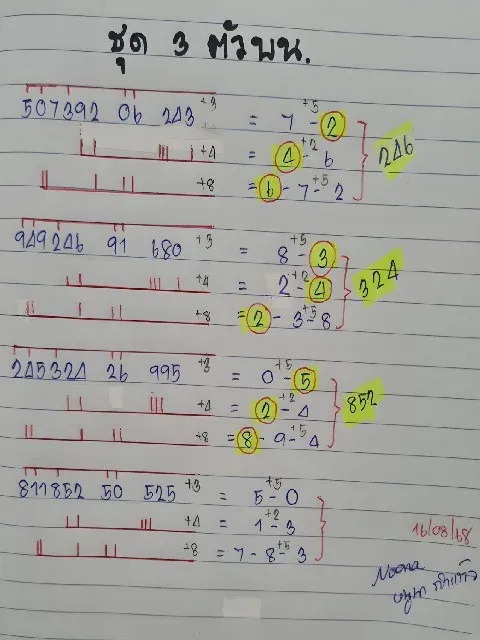 ชุด 3 ตัวบน.
507392 06 243 +3 = 7 +5 - 2
+4 = 4 +2 - 6
+8 = 6 - 7 +5 - 2
246
949246 91 680 +3 = 8 +5 - 3
+4 = 2 +2 - 4
+8 = 2 - 3 +5 - 8
324
245324 26 995 +3 = 0 +5 - 5
+4 = 2 +2 - 4
+8 = 8 - 9 +5 - 4
852
811852 50 525 +3 = 5 +5 - 0
+4 = 1 +2 - 3
+8 = 7 - 8 +5 - 3
16/08/68
Noona